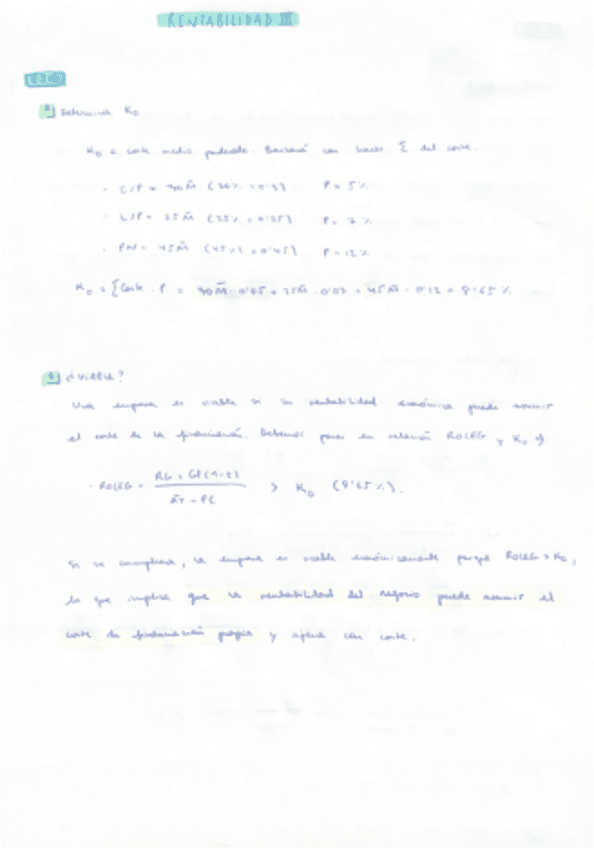 RENTABILIDAD III
a Determina K₀
K₀ = coste medio ponderado. Bastará con hacer Σ del coste.
· C/P = 30M̄ (30% = 0'3) P = 5%
· L/P = 25M̄ (25% = 0'25) P = 7%
· PN = 45M̄ (45%) = 0'45) P = 12%
K₀ = Σ Coste · P = 30M̄ · 0'05 + 25M̄ · 0'07 + 45M̄ · 0'12 = 8'65%
b ¿Viable?
Una empresa es viable si su rentabilidad económica puede asumir
el coste de la financiación. Debemos poner en relación ROLEG y K₀
· ROLEG = RG + GF(1-t) / AT - PC > K₀ (8'65%).
Si se cumpliera, la empresa es viable económicamente porque ROLEG > K₀,
lo que implica que la rentabilidad del negocio puede asumir el
coste de financiación propia y ajena con coste.